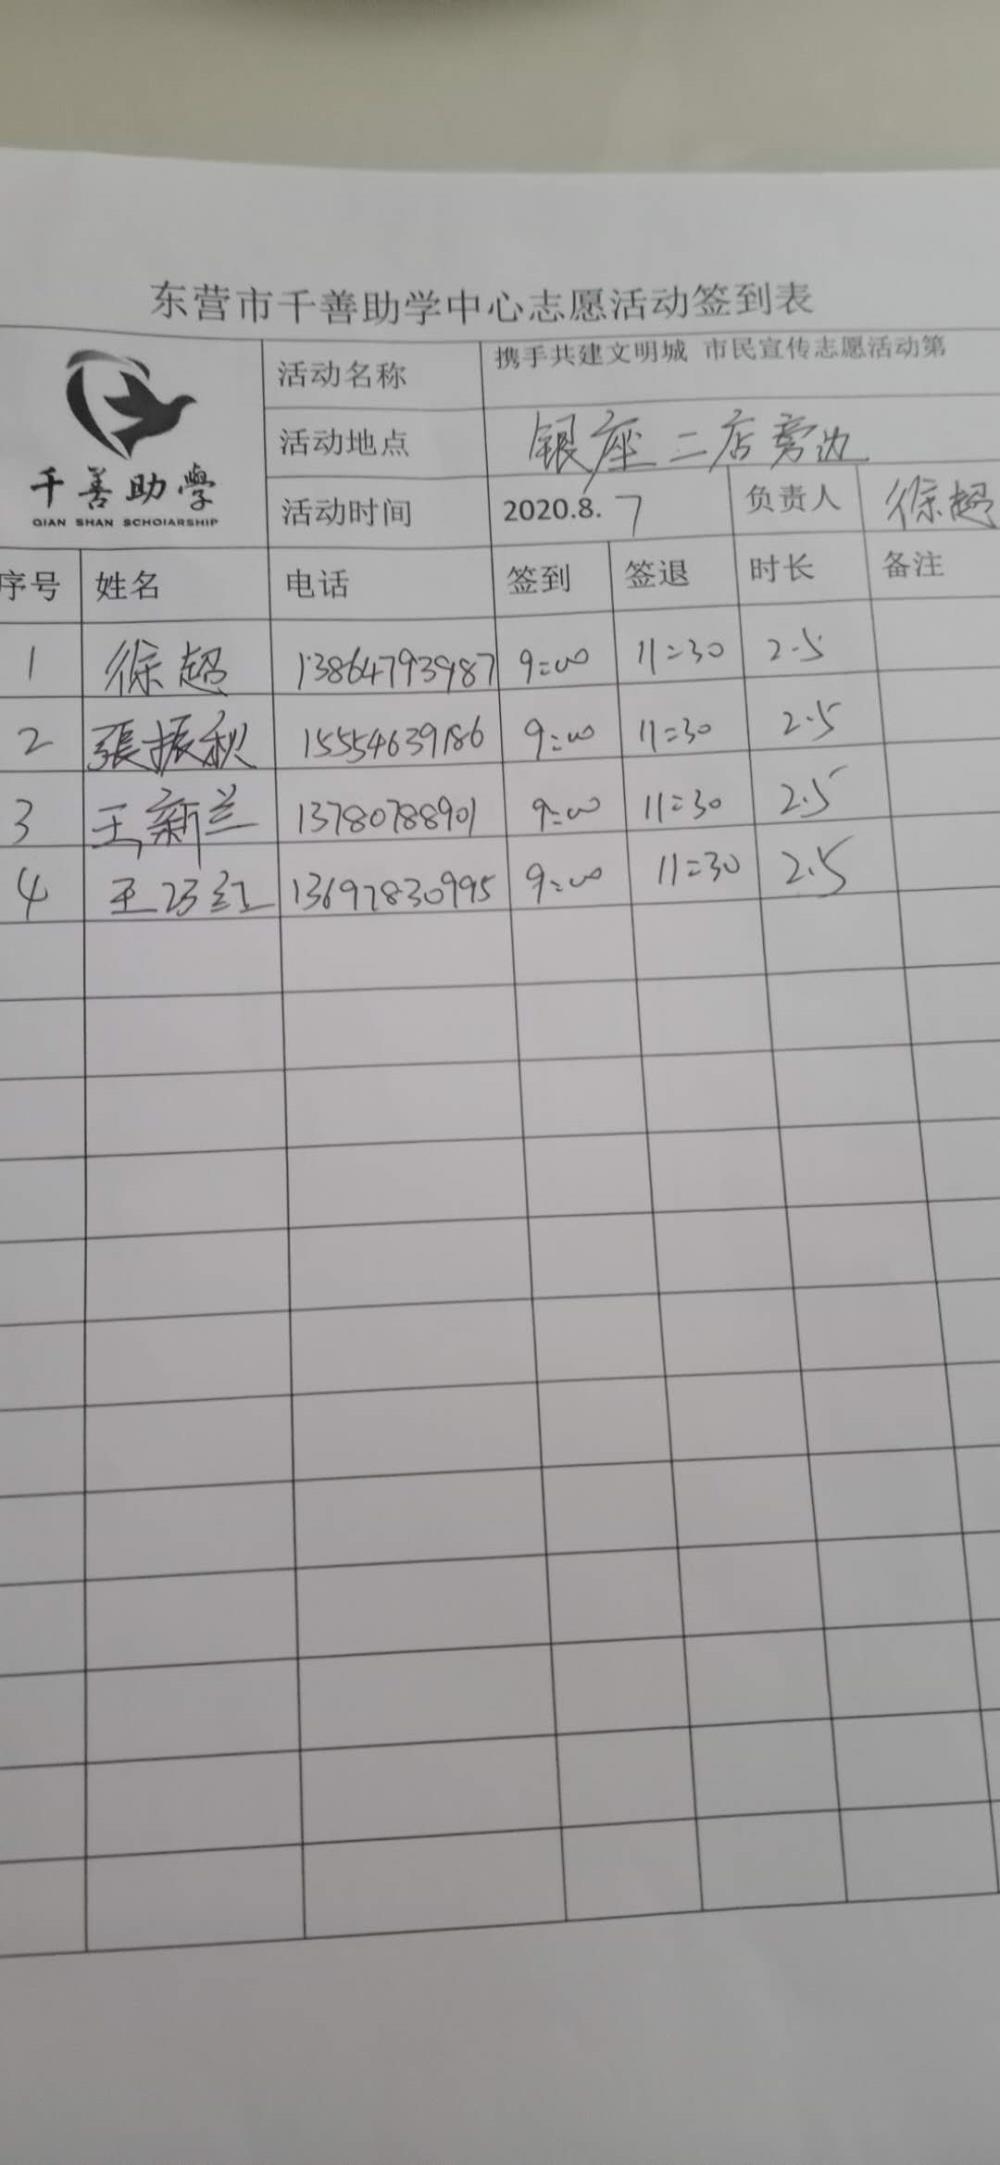 东营市千善助学中心志愿活动签到表
千善助學
QIAN SHAN SCHOIARSHIP
活动名称 携手共建文明城 市民宣传志愿活动第
活动地点 银座二店旁边
活动时间 2020.8.7 负责人 徐超
序号 姓名 电话 签到 签退 时长 备注
1 徐超 13864793987 9:00 11:30 2.5
2 張振秋 15554639186 9:00 11:30 2.5
3 王新兰 13780788901 9:00 11:30 2.5
4 王 红 13697830995 9:00 11:30 2.5